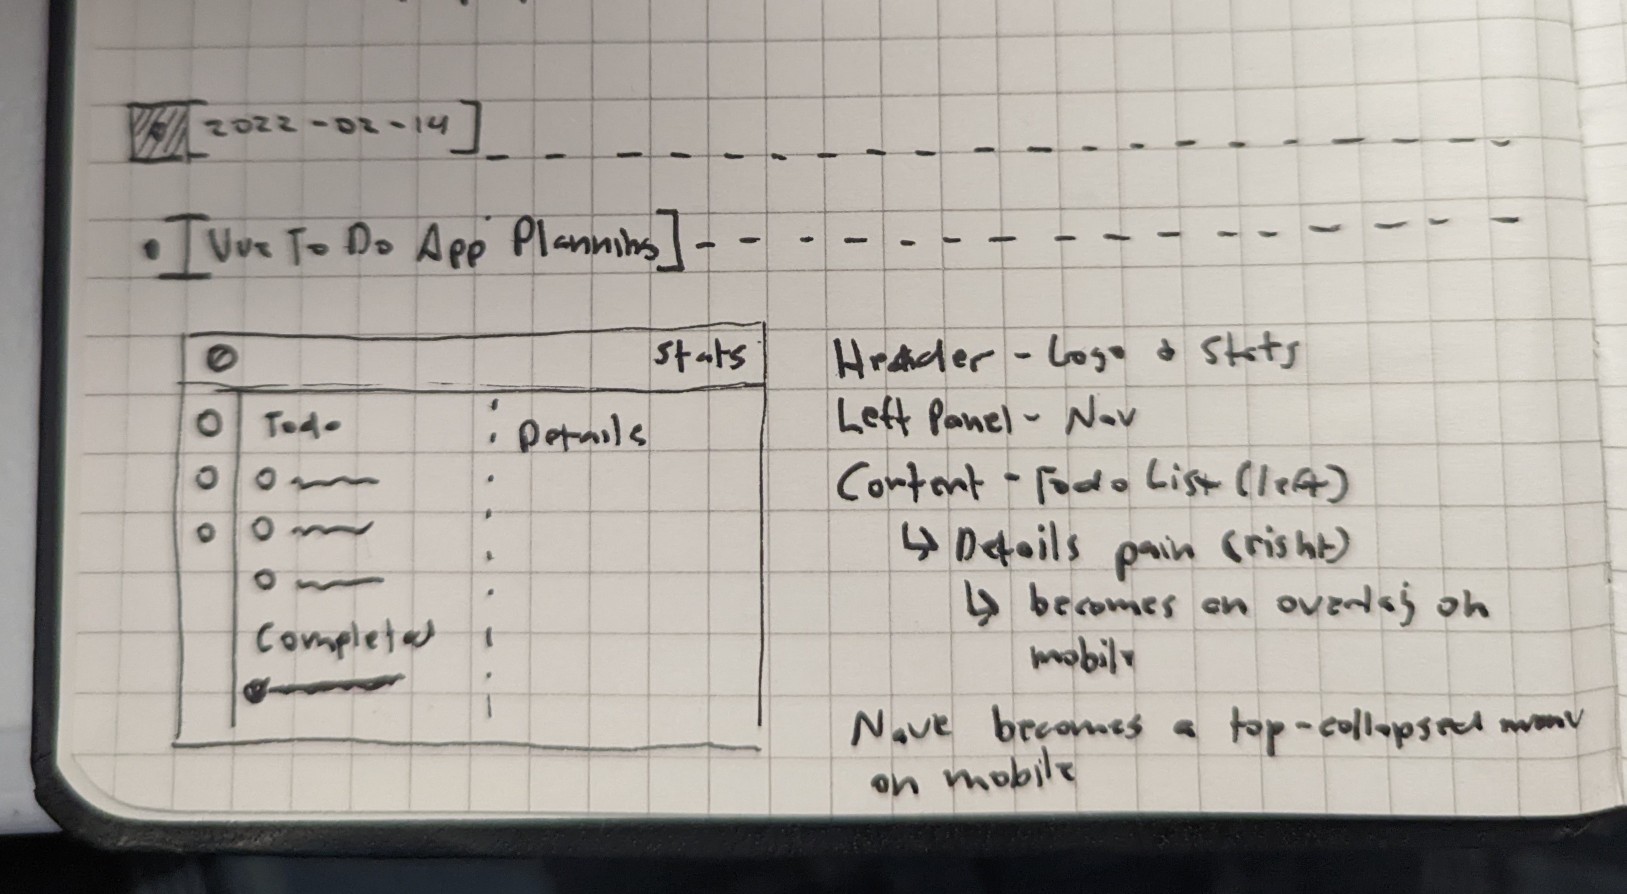 [2022-02-14]
[Vue To Do App Planning]
Stats
Todo
Details
Completed
Header - Logo & Stats
Left Panel - Nav
Content - Todo List (left)
↳ Details pain (right)
↳ becomes an overlay on
mobile
Nave becomes a top-collapsed menu
on mobile